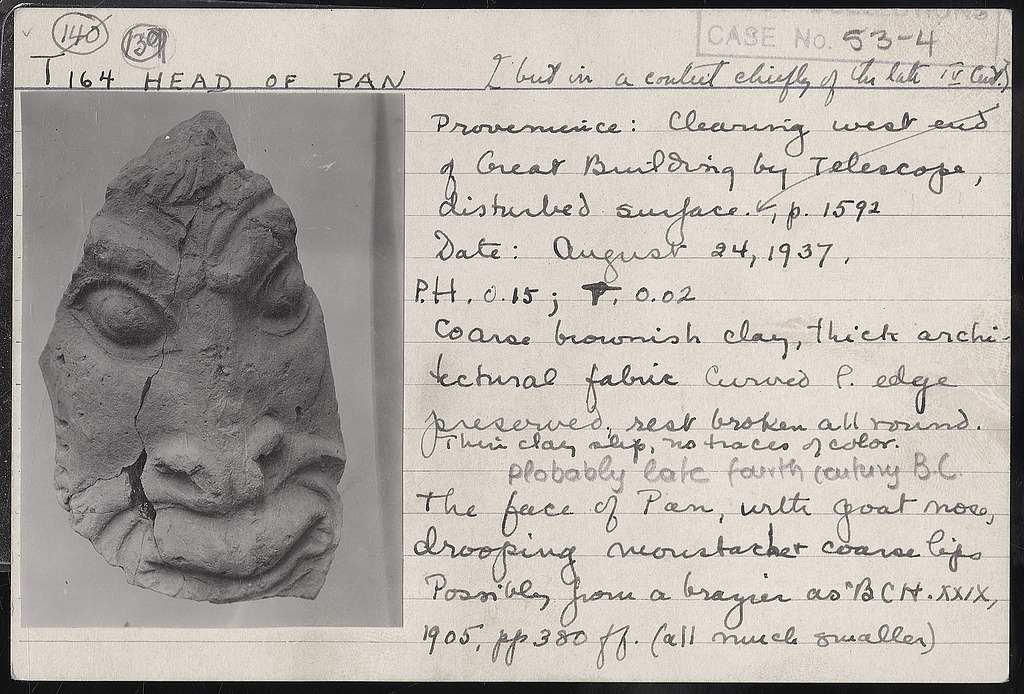 140 139
CASE No. 53-4
T 164 HEAD OF PAN
(but in a context chiefly of the late IV Cent.)
Provenience: Clearing west end
of Great Building by Telescope,
disturbed surface. , p. 1592
Date: August 24, 1937.
P.H. 0.15; T. 0.02
Coarse brownish clay, thick archi-
tectural fabric Curved l. edge
preserved, rest broken all round.
Thin clay slip, no traces of color.
Probably late fourth century B.C.
The face of Pan, with goat nose,
drooping moustache coarse lips
Possibly from a brazier as BCH. XXIX,
1905, pp 380 ff. (all much smaller)